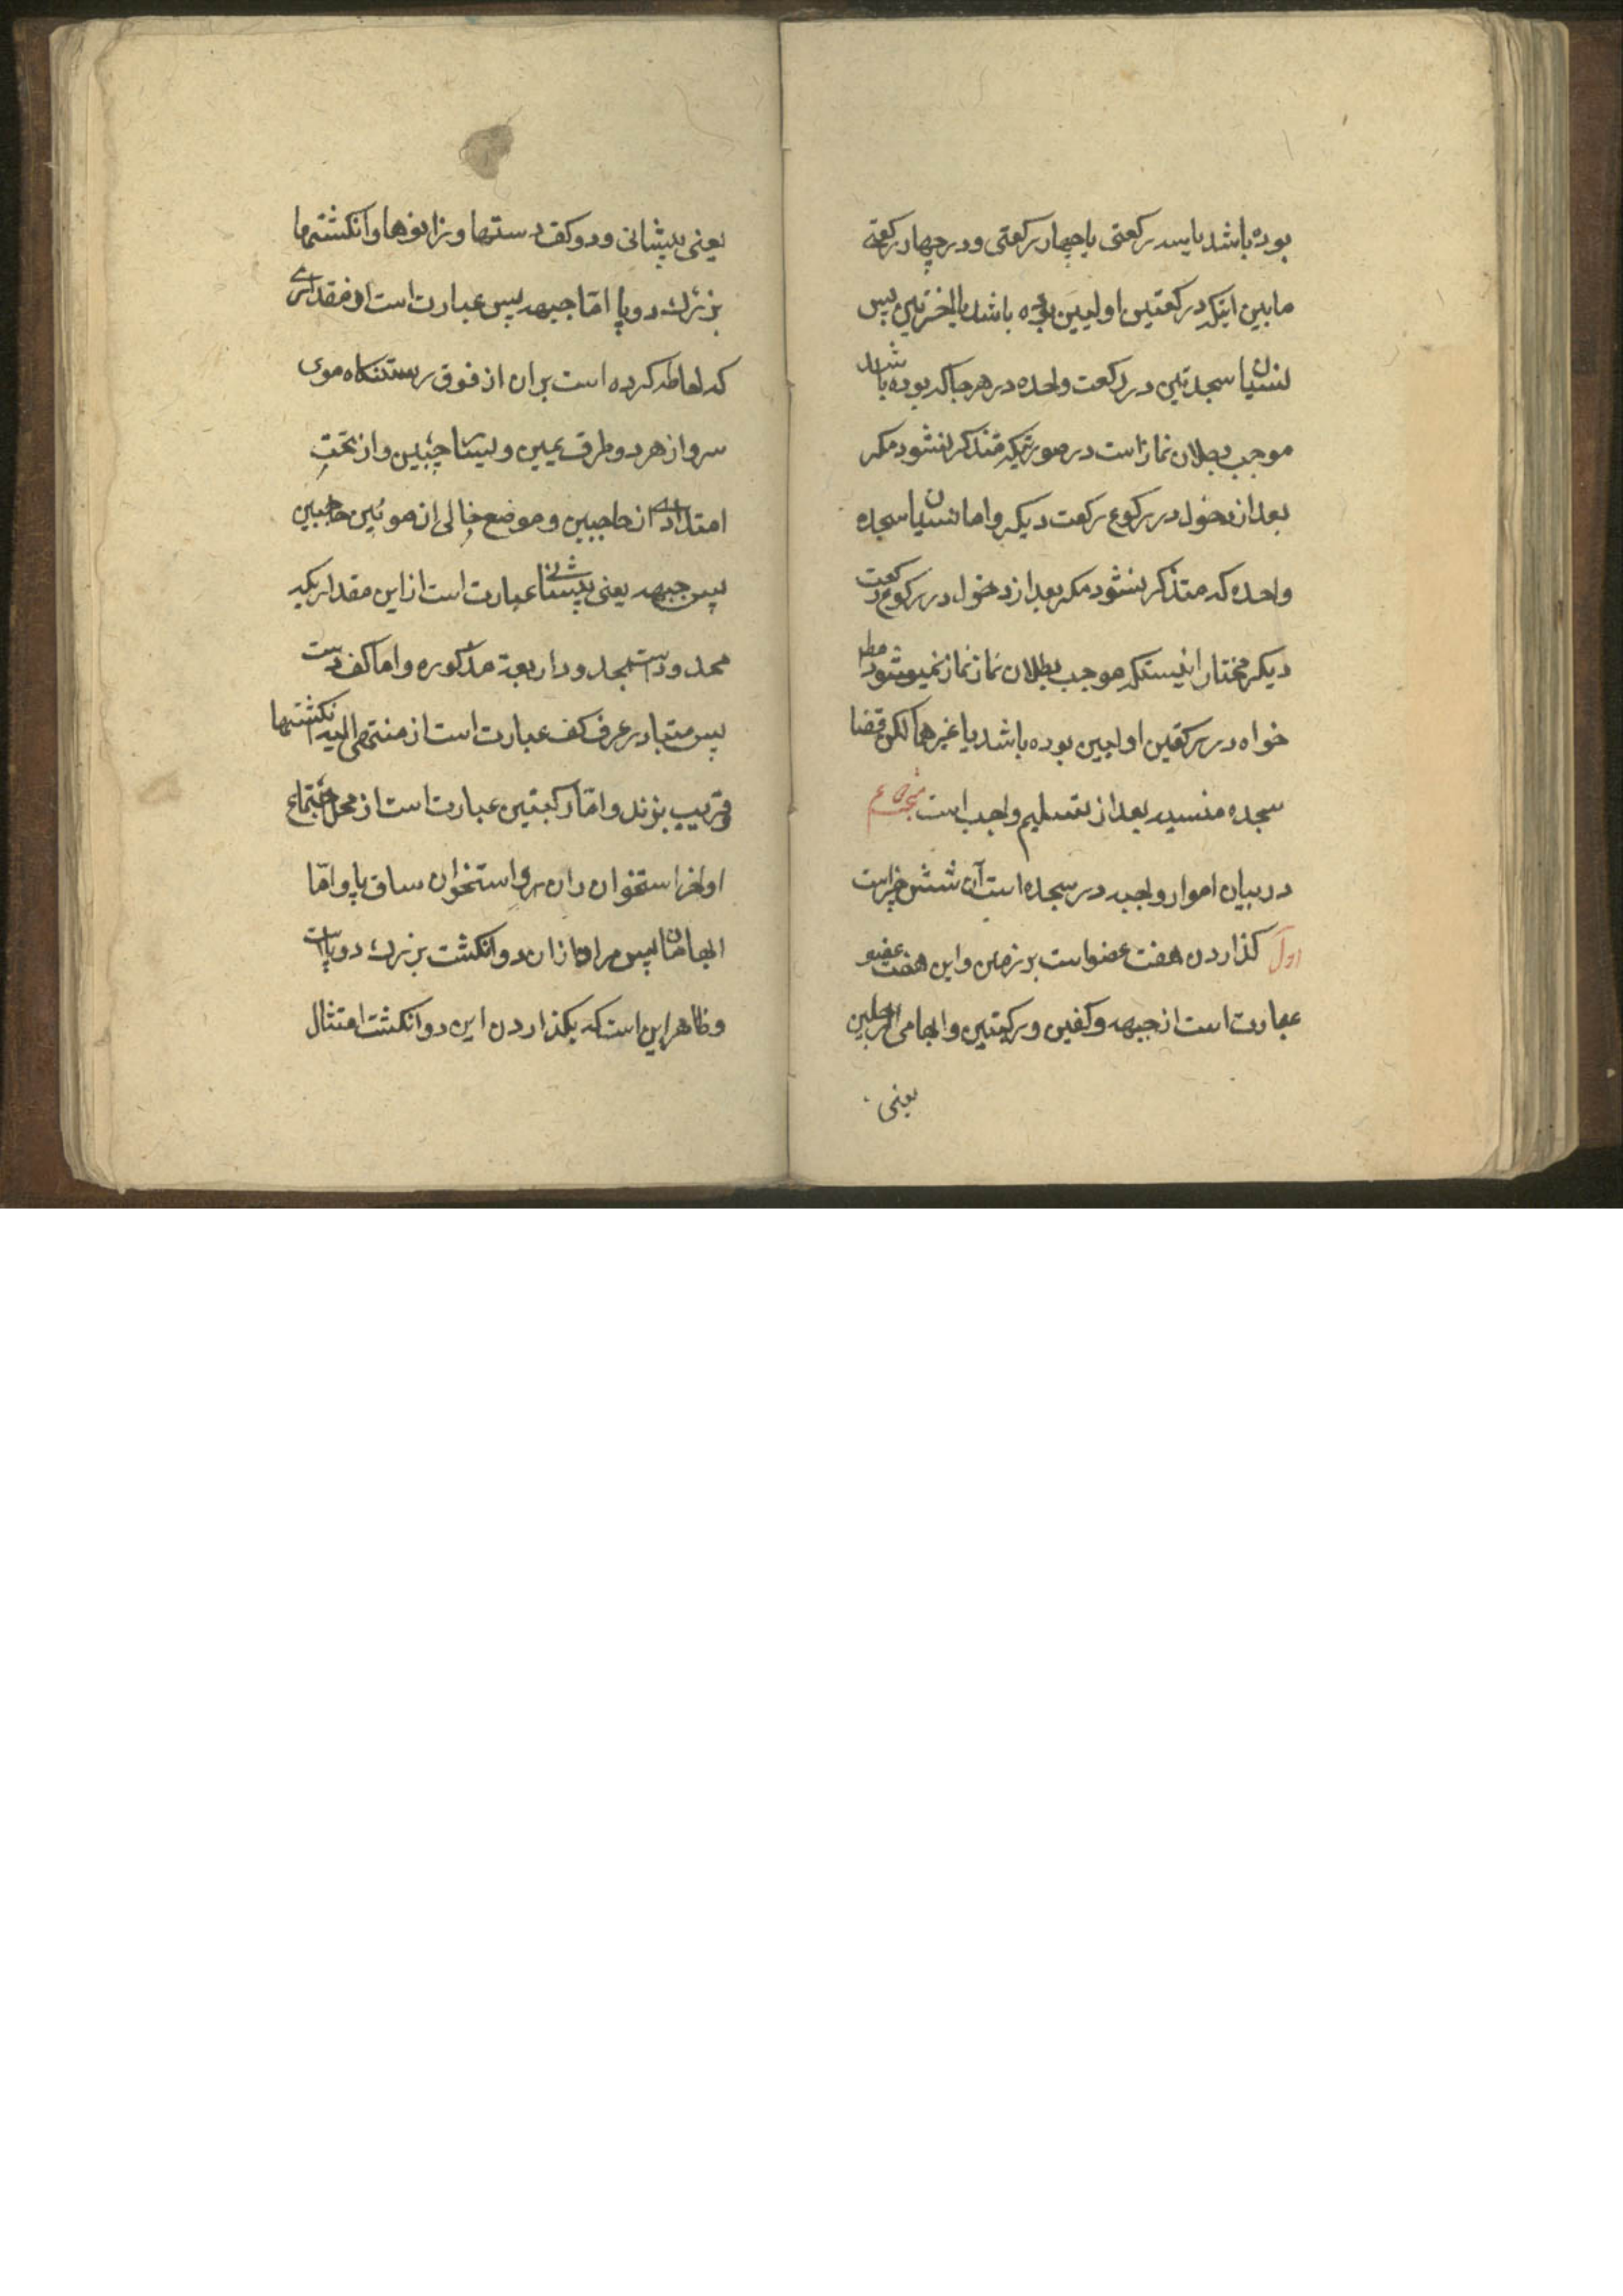 بوده باشد یا سه رکعتی یا چهار رکعتی و در چهار رکعتی
مابین اینکه در رکعتین اولیین بوده باشد یا اخرتین پس
نسیان سجدتین در رکعت واحده در هر جا که بوده باشد
موجب بطلان نماز است در صورتیکه متذکر نشود مکر
بعد از دخول در رکوع رکعت دیکر و اما نسیان سجده
واحده که متذکر نشود مکر بعد از دخول در رکوع رکعت
دیکر مختار اینستکه موجب بطلان نماز نماز نمیشود مطم
خواه در رکعتین اولیین بوده باشد یا غیرهما لکن قضا
سجده منسیه بعد از تسلیم واجب است
در بیان امور واجب در سجده است آن شش چیز است
اول کذاردن هفت عضو است بر زمین و این هفت عضو
عبارت است از جبهه و کفین و رکبتین و ابهامی الرجلین
یعنی
یعنی پیشانی و دو کف دستها و زانوها و انکشتها
بزرک دو پا امّا جبهه پس عبارت است از مقداری
که احاطه کرده است بر ان از فوق رستنکاه موی
سر و از هر دو طرف یمین و یسار جبین و از تحت
امتداد از حاجبین و موضع خالی از مو بین حاجبین
پس جبهه یعنی پیشانی عبارت است از این مقدار یکه
محدود است بحدود اربعة مذکوره و اما کف دست
پس متبادر عرف کف عبارت است از منتهی الیه انکشتها
قریب بزند و امّا رکبتین عبارت است از محل اجتماع
اواخر استخوان ران بر استخوان ساق پا و امّا
ابهامان پس مراد از ان دو انکشت بزرک دو پاست
و ظاهر این است که بکذاردن این دو انکشت امتثال